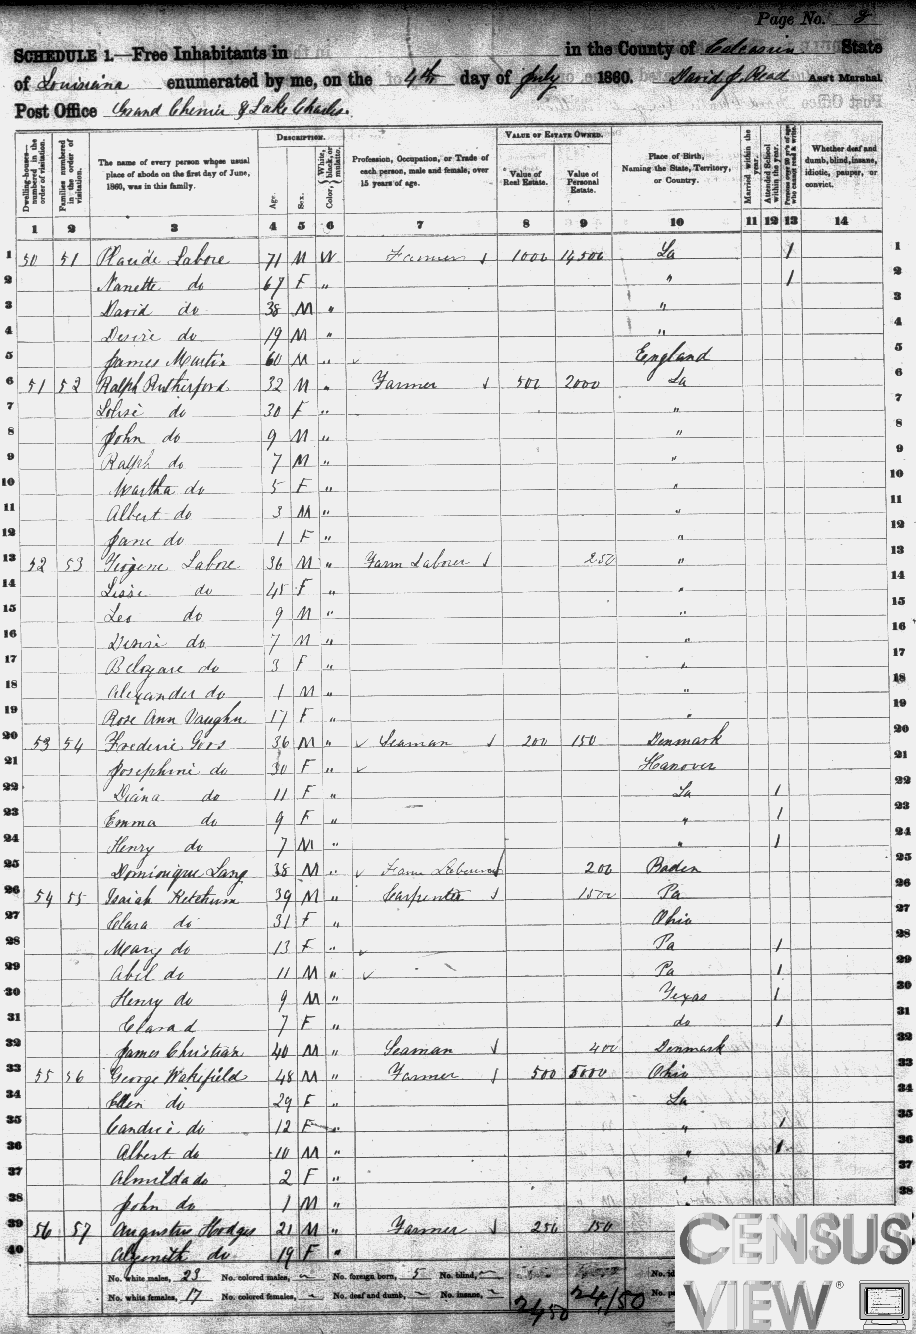 Page No. 8
SCHEDULE 1.—Free Inhabitants in in the County of Calcasieu State
of Louisiana enumerated by me, on the 4th day of July 1860. David J. Read Ass't Marshal
Post Office Grand Chenier & Lake Charles.
DESCRIPTION. VALUE OF ESTATE OWNED.
Dwelling-houses—numbered in the order of visitation. Families numbered in the order of visitation. The name of every person whose usual place of abode on the first day of June, 1860, was in this family. Age. Sex. Color, White, black, or mulatto. Profession, Occupation, or Trade of each person, male and female, over 15 years of age. Value of Real Estate. Value of Personal Estate. Place of Birth, Naming the State, Territory, or Country. Married within the year. Attended School within the year. Persons over 20 y'rs of age who cannot read & write. Whether deaf and dumb, blind, insane, idiotic, pauper, or convict.
1 2 3 4 5 6 7 8 9 10 11 12 13 14
1 50 51 Placide Labore 71 M W Farmer 1000 14,500 La 1 1
2 Nanette do 67 F " " 1 2
3 David do 38 M " " 3
4 Desire do 19 M " " 4
5 James Martin 60 M " England 5
6 51 52 Ralph Rutherford 32 M " Farmer 500 2000 La 6
7 Loise do 30 F " " 7
8 John do 9 M " " 8
9 Ralph do 7 M " " 9
10 Martha do 5 F " " 10
11 Albert do 3 M " " 11
12 Jane do 1 F " " 12
13 52 53 Labore 36 M " Farm Laborer 250 " 13
14 Lissi do 45 F " " 14
15 Leo do 9 M " " 15
16 Desire do 7 M " " 16
17 Belozare do 3 F " " 17
18 Alexander do 1 M " " 18
19 Rose Ann Vaughn 17 F " " 19
20 53 54 Frederic Goos 36 M " Seaman 200 150 Denmark 20
21 Josephine do 30 F " Hanover 21
22 Diana do 11 F " La 1 22
23 Emma do 9 F " " 1 23
24 Henry do 7 M " " 1 24
25 Dominique Lang 38 M " Farm Labourer 200 Baden 25
26 54 55 Isaiah Ketchum 39 M " Carpenter 1500 Pa 26
27 Clara do 31 F " Ohio 27
28 Mary do 13 F " Pa 1 28
29 Abel do 11 M " Pa 1 29
30 Henry do 9 M " Texas 1 30
31 Clara d 7 F " do 1 31
32 James Christian 40 M " Seaman 400 Denmark 32
33 55 56 George Wakefield 48 M " Farmer 500 5000 Ohio 33
34 Ellen do 29 F " La 34
35 Candice do 12 F " " 1 35
36 Albert do 10 M " " 1 36
37 Almilda do 2 F " " 37
38 John do 1 M " 38
39 56 57 Augustus Hodges 21 M " Farmer 250 150
40 do 19 F "
No. white males, 23 No. colored males, No. foreign born, 5 No. blind,
No. white females, 17 No. colored females, No. deaf and dumb, No. insane, 2450 24150
CENSUS
VIEW®